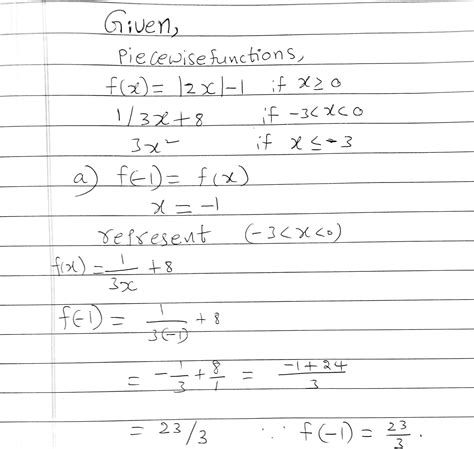 Given,
Piecewise functions,
f(x) = |2x|-1 if x ≥ 0
1/3x+8 if -3<x<0
3x² if x ≤ -3
a) f(-1) = f(x)
x = -1
represent (-3<x<0)
f(x) = 1/3x + 8
f(-1) = 1/3(-1) + 8
= -1/3 + 8/1 = -1+24/3
= 23/3 ∵ f(-1) = 23/3.